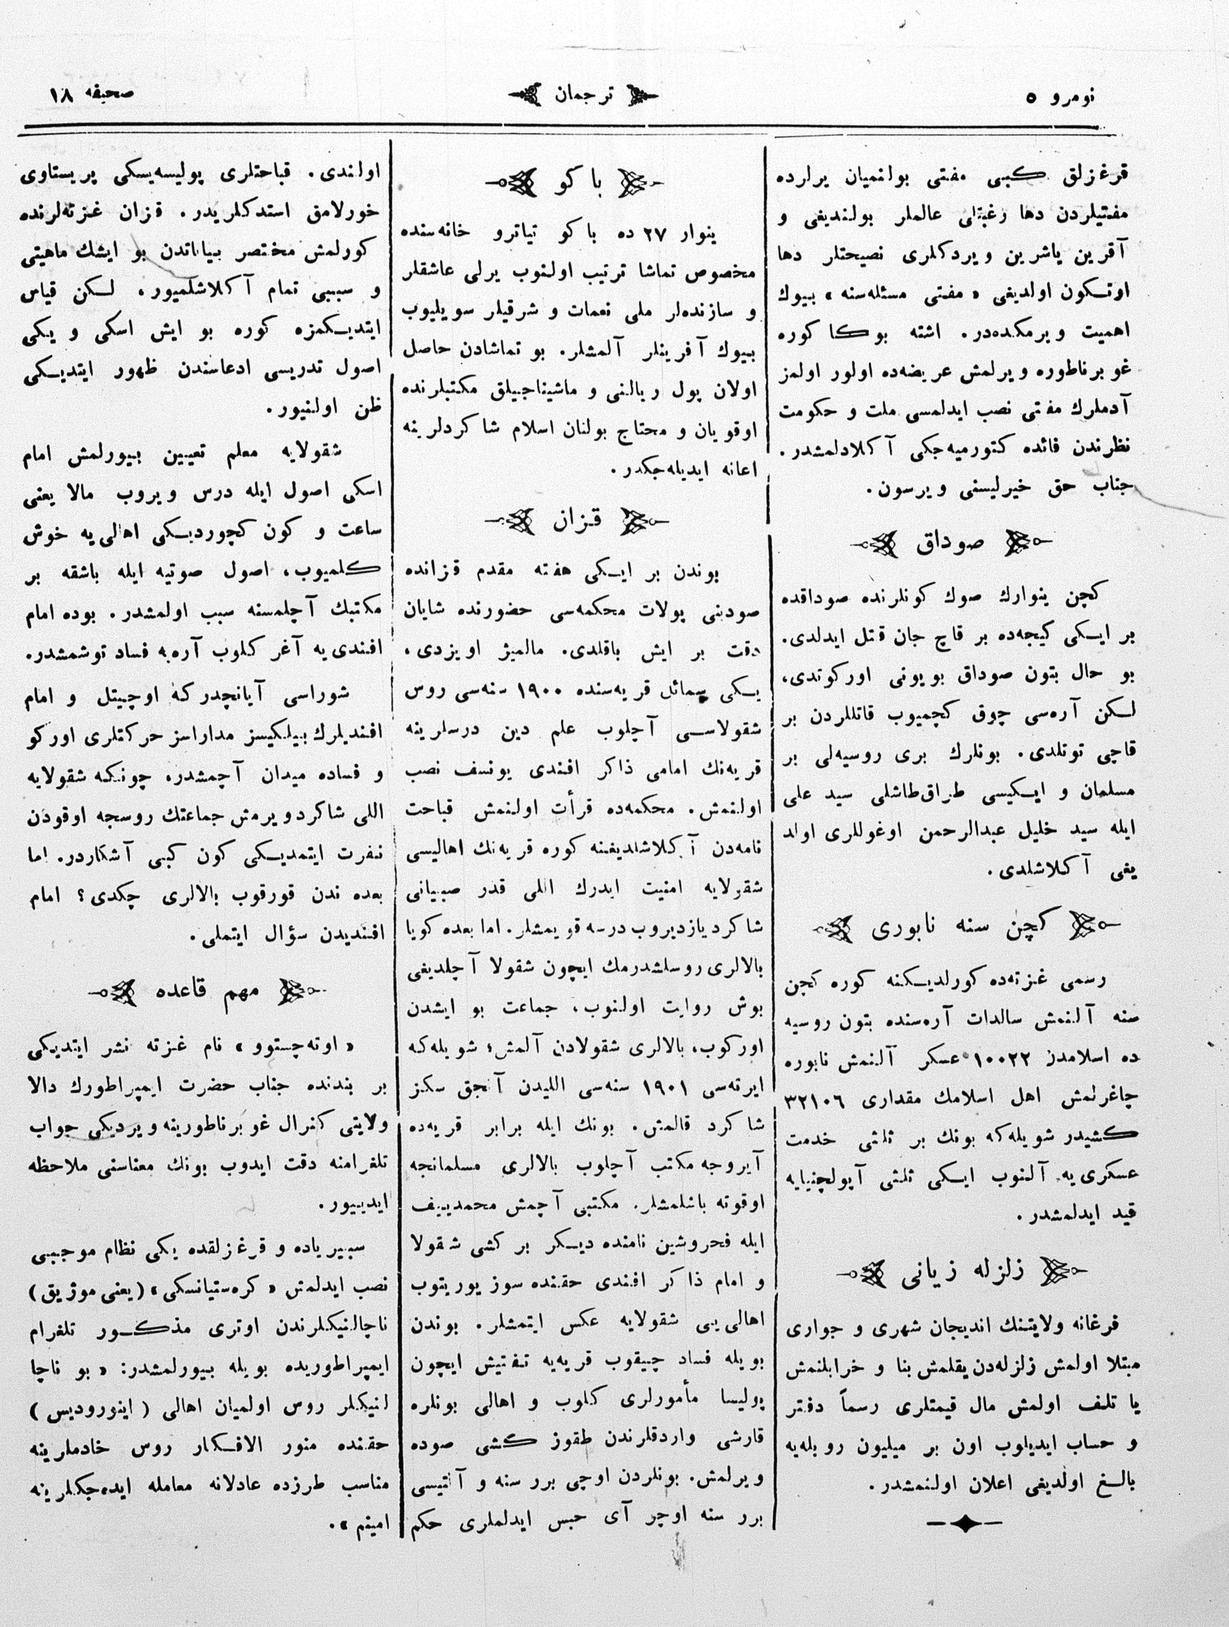 نومرو ٥
ترجمان
صحیفه ١٨
قرغزلق كبی مفتی بولنمیان یرلرده
مفتیلردن دها رغبتلی عالملر بولندیغی و
آقرین یاشرین ویردكلری نصیحتلر دها
اوتكون اولدیغی «مفتی مسئله‌سنه» بیوك
اهمیت ویرمكده‌در. اشته بوكا كوره
غوبرناطوره ویرلمش عریضه‌ده اولور اولمز
آدملرك مفتی نصب ایدلمسی ملت و حكومت
نظرندن فائده كتورمیه‌جكی آكلادلمشدر.
جناب حق خیرلیسنی ویرسون.
صوداق
كچن ینوارك صوك كونلرنده صوداقده
بر ایكی كیجه‌ده بر قاچ جان قتل ایدلدی.
بو حال بتون صوداق بویونی اوركوتدی،
لكن آره‌سی چوق كچمیوب قاتللردن بر
قاچی توتلدی. بونلرك بری روسیه‌لی بر
مسلمان و ایكیسی طراق‌طاشلی سید علی
ایله سید خلیل عبدالرحمن اوغوللری اولد
یغی آكلاشلدی.
كچن سنه نابوری
رسمی غزته‌ده كورلدیكنه كوره كچن
سنه آلنمش سالدات آره‌سنده بتون روسیه
ده اسلامدن ١٠٠٢٢ عسكر آلنمش نابوره
چاغرلمش اهل اسلامك مقداری ٣٢١٠٦
كشیدر شویله‌كه بونك بر ثلثی خدمت
عسكری‌یه آلنوب ایكی ثلثی آپولچنیایه
قید ایدلمشدر.
زلزله زیانی
فرغانه ولایتنك اندیجان شهری و جواری
مبتلا اولمش زلزله‌دن یقلمش بنا و خرابلنمش
یا تلف اولمش مال قیمتلری رسماً دفتر
و حساب ایدیلوب اون بر میلیون روبله‌یه
بالغ اولدیغی اعلان اولنمشدر.
باكو
ینوار ٢٧ ده باكو تیاترو خانه‌سنده
مخصوص تماشا ترتیب اولنوب یرلی عاشقلر
و سازنده‌لر ملی نغمات و شرقیلر سویلیوب
بیوك آفرینلر آلمشلر. بو تماشادن حاصل
اولان پول ریالنی و ماشیناجیلق مكتبلرنده
اوقویان و محتاج بولنان اسلام شاكردلرینه
اعانه ایدیله‌جكدر.
قزان
بوندن بر ایكی هفته مقدم قزانده
صودبنی پولات محكمه‌سی حضورنده شایان
دقت بر ایش باقلدی. مالمیژ اویزدی،
یكی سمائل قریه‌سنده ١٩٠٠ سنه‌سی روس
شقولاسی آچلوب علم دین درسلرینه
قریه‌نك امامی ذاكر افندی یوسف نصب
اولنمش. محكمه‌ده قرأت اولنمش قباحت
نامه‌دن آكلاشلدیغنه كوره قریه‌نك اهالیسی
شقولایه امنیت ایدرك اللی قدر صبیانی
شاكرد یازدیروب درسه قویمشلر. اما بعده كویا
بالالری روسلشدرمك ایچون شقولا آچلدیغی
بوش روایت اولنوب، جماعت بو ایشدن
اوركوب، بالالری شقولادن آلمش؛ شویله‌كه
ایرته‌سی ١٩٠١ سنه‌سی اللیدن آنجق سكز
شاكرد قالمش. بونك ایله برابر قریه‌ده
آیروجه مكتب آچلوب بالالری مسلمانجه
اوقوته باشلمشلر. مكتبی آچمش محمدییف
ایله فحروشین نامنده دیكر بر كشی شقولا
و امام ذاكر افندی حقنده سوز یوریتوب
اهالی‌یی شقولایه عكس ایتمشلر. بوندن
بویله فساد چیقوب قریه‌یه تفتیش ایچون
پولیسا مأمورلری كلوب و اهالی بونلره
قارشی واردقلرندن طقوز كشی صوده
ویرلمش. بونلردن اوچی برر سنه و آلتیسی
برر سنه اوچر آی حبس ایدلملری حكم
اولندی. قباحتلری پولیسه‌یسكی پریستاوی
خورلامق استدكلریدر. قزان غزته‌لرنده
كورلمش مختصر بیاناتدن بو ایشك ماهیتی
و سببی تمام آكلاشلمیور. لكن قیاس
ایتدیكمزه كوره بو ایش اسكی و یكی
اصول تدریسی ادعاسندن ظهور ایتدیكی
ظن اولنیور.
شقولایه معلم تعیین بیورلمش امام
اسكی اصول ایله درس ویروب مالا یعنی
ساعت و كون كچوردیكی اهالی‌یه خوش
كلمیوب، اصول صوتیه ایله باشقه بر
مكتبك آچلمسنه سبب اولمشدر. بوده امام
افندی‌یه آغر كلوب آره‌یه فساد توشمشدر.
شوراسی آیانچدركه اوچیتل و امام
افندیلرك بیلكیسز مداراسز حركتلری اوركو
و فساده میدان آچمشدر، چونكه شقولایه
اللی شاكرد ویرمش جماعتك روسجه اوقودن
نفرت ایتمدیكی كون كبی آشكاردر. اما
بعده ندن قورقوب بالالری چكدی؟ امام
افندیدن سؤال ایتملی.
مهم قاعده
«اوته‌چستوو» نام غزته نشر ایتدیكی
بر بندنده جناب حضرت ایمپراطورك دالا
ولایتی كنرال غوبرناطورینه ویردیكی جواب
تلغرامنه دقت ایدوب بونك معناسنی ملاحظه
ایدییور.
سیبریاده و قرغزلقده یكی نظام موجبی
نصب ایدلمش «كره‌ستیانسكی» (یعنی موژیق)
ناچالنیكلرندن اوتری مذكور تلغرام
ایمپراطوریده بویله بیورلمشدر: «بو ناچا
لنیكلر روس اولمیان اهالی (اینورودیس)
حقنده منور الافكار روس خادملرینه
مناسب طرزده عادلانه معامله ایده‌جكلرینه
امینم».